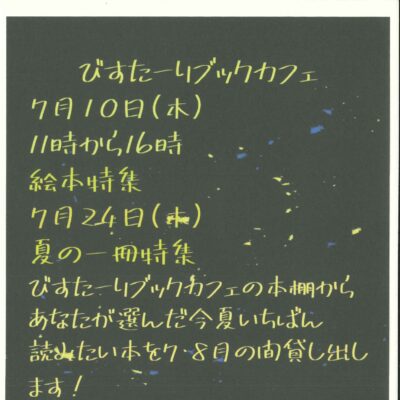 びすたーりブックカフェ
7月10日(木)
11時から16時
絵本特集
7月24日(木)
夏の一冊特集
びすたーりブックカフェの本棚から
あなたが選んだ今夏いちばん
読みたい本を7・8月の間貸し出し
ます!